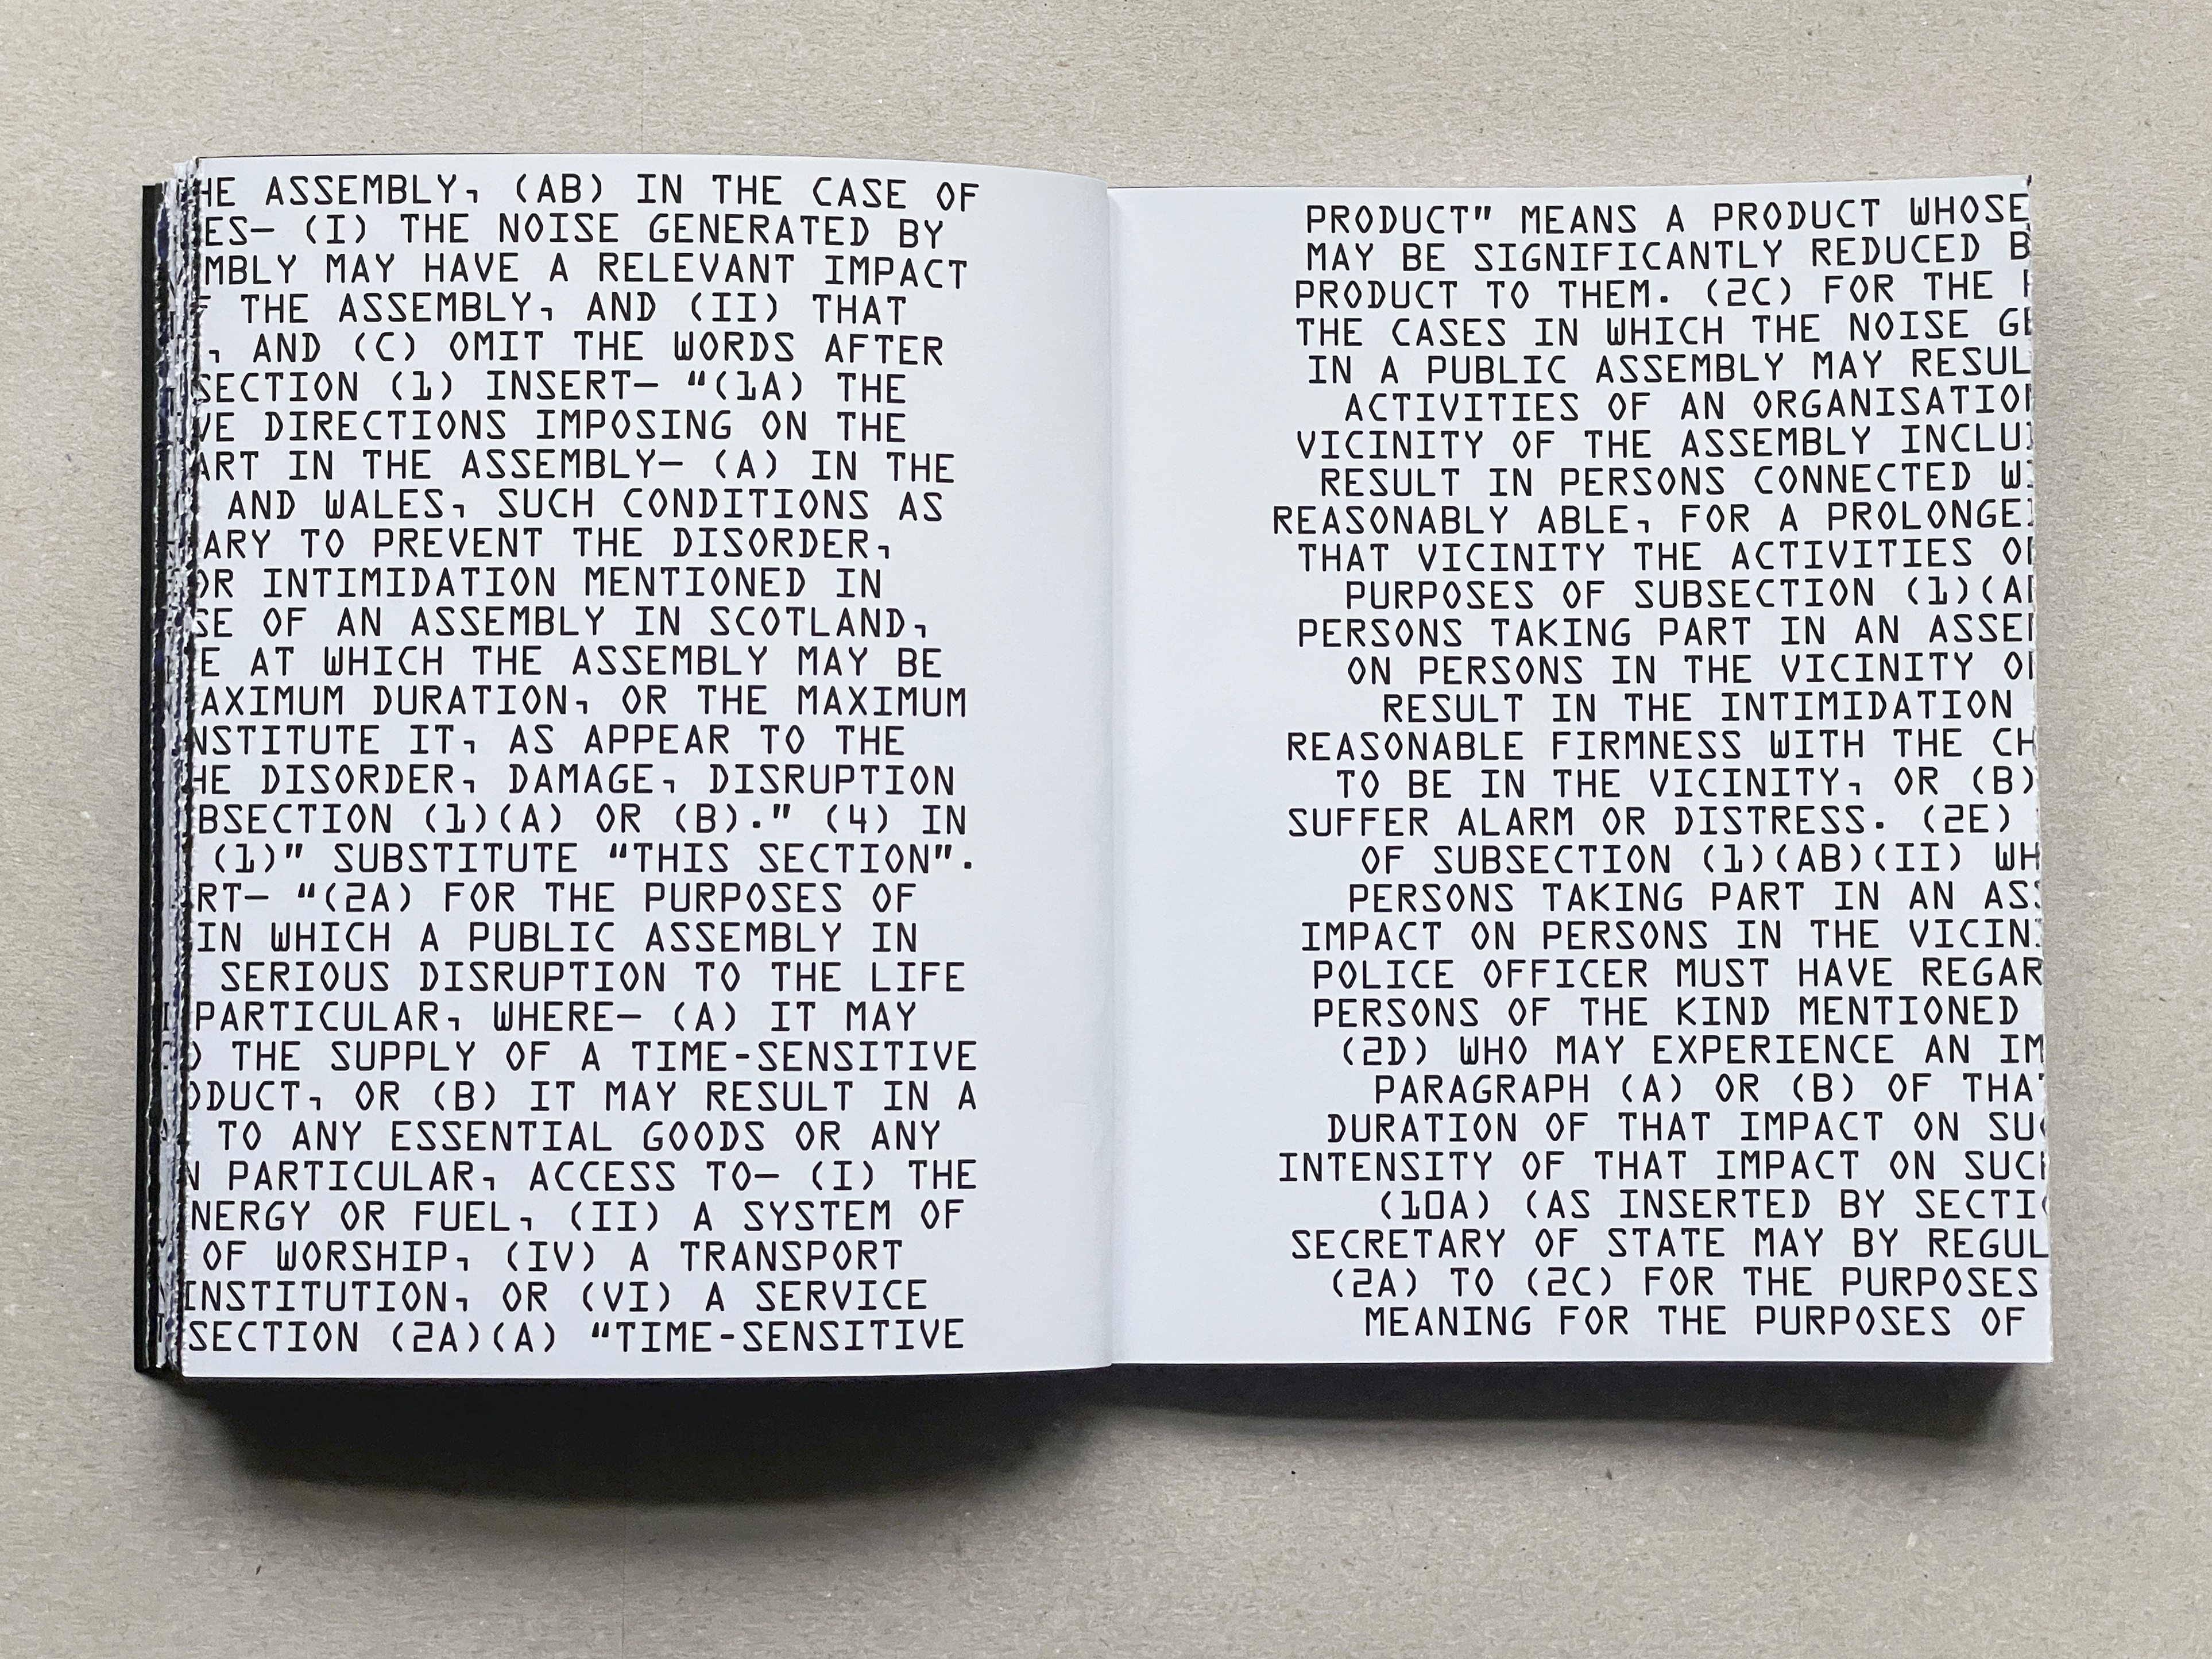 HE ASSEMBLY, (AB) IN THE CASE OF
ES— (I) THE NOISE GENERATED BY
MBLY MAY HAVE A RELEVANT IMPACT
THE ASSEMBLY, AND (II) THAT
, AND (C) OMIT THE WORDS AFTER
SECTION (1) INSERT— “(1A) THE
VE DIRECTIONS IMPOSING ON THE
ART IN THE ASSEMBLY— (A) IN THE
AND WALES, SUCH CONDITIONS AS
ARY TO PREVENT THE DISORDER,
OR INTIMIDATION MENTIONED IN
SE OF AN ASSEMBLY IN SCOTLAND,
E AT WHICH THE ASSEMBLY MAY BE
AXIMUM DURATION, OR THE MAXIMUM
NSTITUTE IT, AS APPEAR TO THE
HE DISORDER, DAMAGE, DISRUPTION
BSECTION (1)(A) OR (B).” (4) IN
(1)” SUBSTITUTE “THIS SECTION”.
RT— “(2A) FOR THE PURPOSES OF
IN WHICH A PUBLIC ASSEMBLY IN
SERIOUS DISRUPTION TO THE LIFE
PARTICULAR, WHERE— (A) IT MAY
THE SUPPLY OF A TIME-SENSITIVE
ODUCT, OR (B) IT MAY RESULT IN A
TO ANY ESSENTIAL GOODS OR ANY
N PARTICULAR, ACCESS TO— (I) THE
NERGY OR FUEL, (II) A SYSTEM OF
OF WORSHIP, (IV) A TRANSPORT
INSTITUTION, OR (VI) A SERVICE
SECTION (2A)(A) “TIME-SENSITIVE
PRODUCT” MEANS A PRODUCT WHOSE
MAY BE SIGNIFICANTLY REDUCED B
PRODUCT TO THEM. (2C) FOR THE
THE CASES IN WHICH THE NOISE GE
IN A PUBLIC ASSEMBLY MAY RESUL
ACTIVITIES OF AN ORGANISATION
VICINITY OF THE ASSEMBLY INCLU
RESULT IN PERSONS CONNECTED WI
REASONABLY ABLE, FOR A PROLONGE
THAT VICINITY THE ACTIVITIES O
PURPOSES OF SUBSECTION (1)(A
PERSONS TAKING PART IN AN ASSE
ON PERSONS IN THE VICINITY O
RESULT IN THE INTIMIDATION
REASONABLE FIRMNESS WITH THE CH
TO BE IN THE VICINITY, OR (B)
SUFFER ALARM OR DISTRESS. (2E)
OF SUBSECTION (1)(AB)(II) WH
PERSONS TAKING PART IN AN ASS
IMPACT ON PERSONS IN THE VICIN
POLICE OFFICER MUST HAVE REGAR
PERSONS OF THE KIND MENTIONED
(2D) WHO MAY EXPERIENCE AN IM
PARAGRAPH (A) OR (B) OF THAT
DURATION OF THAT IMPACT ON SUC
INTENSITY OF THAT IMPACT ON SUCH
(10A) (AS INSERTED BY SECTI
SECRETARY OF STATE MAY BY REGUL
(2A) TO (2C) FOR THE PURPOSES
MEANING FOR THE PURPOSES OF